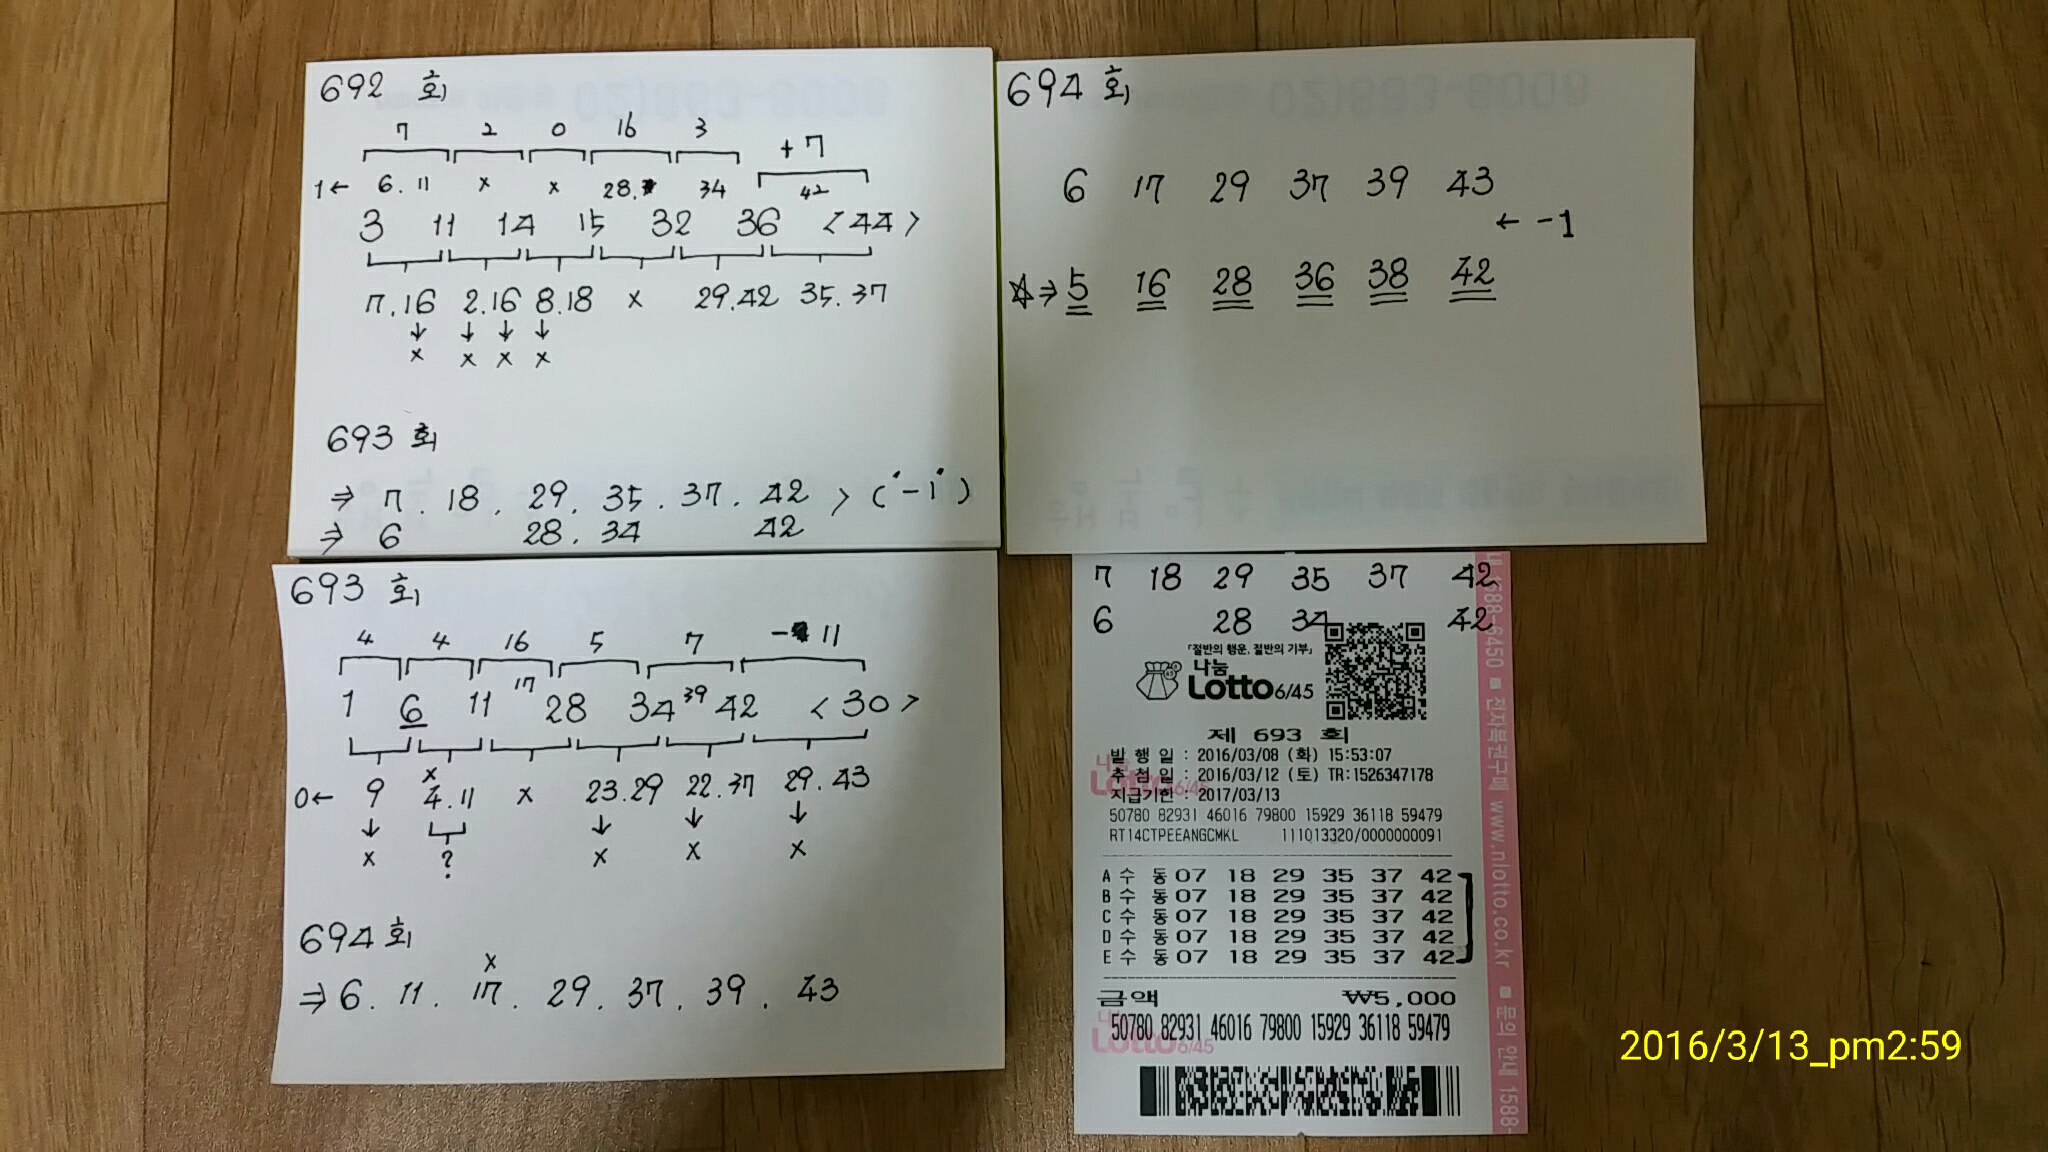 692 회
7 2 0 16 3 +7
1← 6. 11 x x 28. 34 42
3 11 14 15 32 36 <44>
7.16 2.16 8.18 x 29.42 35.37
↓ ↓ ↓ ↓
x x x x
693 회
⇒ 7. 18. 29. 35. 37. 42 > (-1)
⇒ 6 28. 34 42
694 회
6 17 29 37 39 43
← -1
☆⇒ 5 16 28 36 38 42
693 회
4 4 16 5 7 - 11
17 39
1 6 11 28 34 42 <30>
x
0← 9 4.11 x 23.29 22.37 29.43
↓ ↓ ↓ ↓
x ? x x x
694 회
x
⇒ 6. 11. 17. 29. 37. 39. 43
7 18 29 35 37 42
6 28 34 42
「절반의 행운, 절반의 기부」
나눔
Lotto 6/45
제 693 회
발 행 일 : 2016/03/08 (화) 15:53:07
추 첨 일 : 2016/03/12 (토) TR:1526347178
지급기한 : 2017/03/13
50780 82931 46016 79800 15929 36118 59479
RT14CTPEEANGCMKL 111013320/0000000091
A 수 동 07 18 29 35 37 42
B 수 동 07 18 29 35 37 42
C 수 동 07 18 29 35 37 42
D 수 동 07 18 29 35 37 42
E 수 동 07 18 29 35 37 42
금액 ₩5,000
50780 82931 46016 79800 15929 36118 59479
1588-6450 ■ 전자복권구매 www.nlotto.co.kr ■ 문의 안내 1588-
2016/3/13_pm2:59